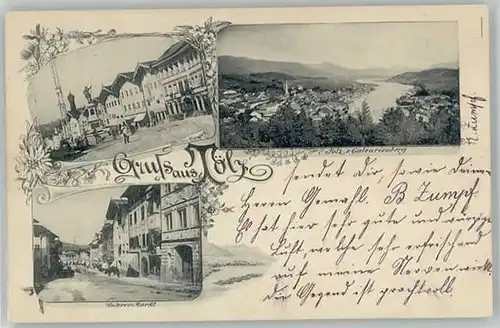 Gruß aus Tölz
Tölz v. Calvarienberg
Unterer Markt
sendet Dir sowie Deinem
Herrn Gemahl. B. Zumpf
Es hat hier sehr gute und würzige
Luft, welche sehr erfrischend
auf meine Nerven wirkt
die Gegend ist prachtvoll.